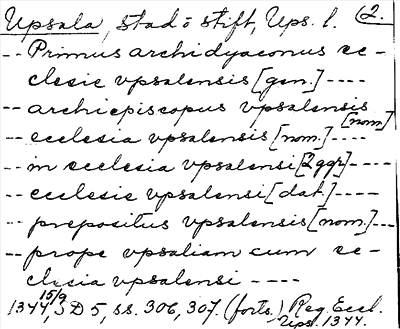 Upsala, stad o stift, Ups. l. (2.
-- Primus archidyaconus ec-
clesie vpsalensis [gen.] ----
-- archiepiscopus vpsalensis [nom]
-- ecclesia vpsalensis [nom.] ----
-- in ecclesia vpsalensi [2 ggr] ----
-- ecclesie vpsalensi [dat.] ----
-- prepositus vpsalensis [nom.] ---
-- prope vpsaliam cum ec-
clesia vpsalensi ----
1344, 15/9, SD 5, ss. 306, 307. (forts.) Reg. Eccl.
Ups. 1344.